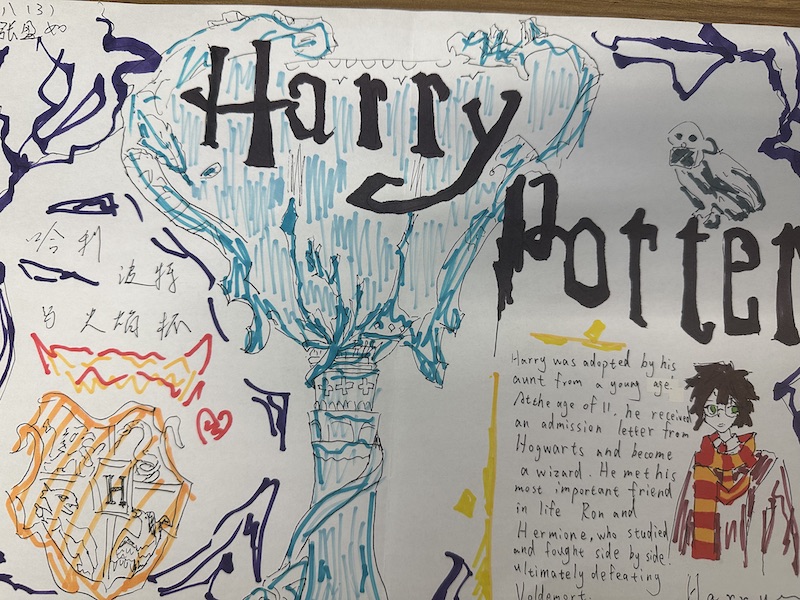 八(3)
张盈如
Harry
Potter
哈利
波特
与火焰杯
H
Harry was adopted by his
aunt from a young age.
At the age of 11, he received
an admission letter from
Hogwarts and become
a wizard. He met his
most important friend
in life Ron and
Hermione, who studied
and fought side by side.
ultimately defeating
Voldemort.